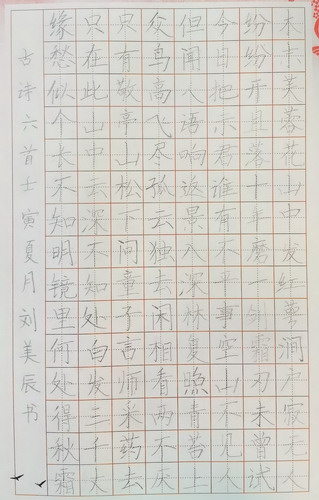 木末芙蓉花山中发红萼涧户寂无人
纷纷开且落十年磨一剑霜刃未曾试
今日把示君谁有不平事空山不见人
但闻人语响返景入深林复照青苔上
众鸟高飞尽孤云独去闲相看两不厌
只有敬亭山松下问童子言师采药去
只在此山中云深不知处白发三千丈
缘愁似个长不知明镜里何处得秋霜
古诗六首壬寅夏月刘美辰书